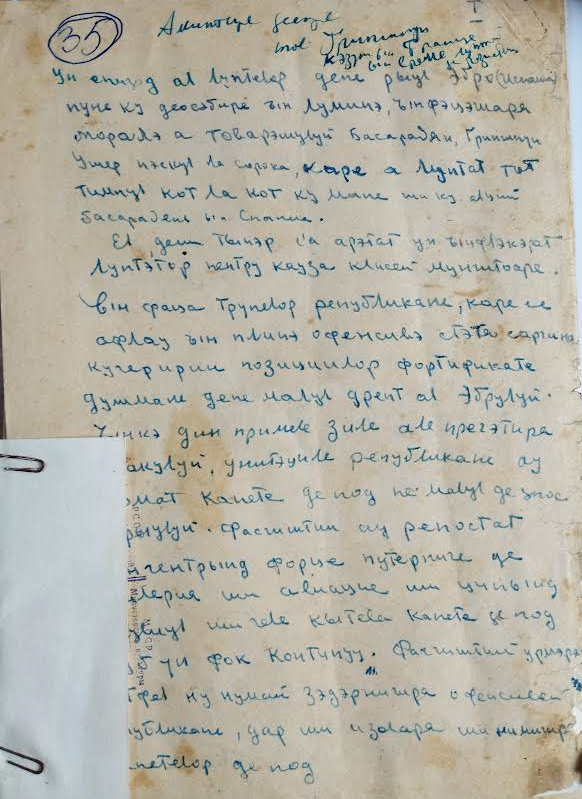 35
Аминтире деспре
тов. Гринштун
кэзут ын Франце
ын время луптей
Ун епизод ал луптелор дела рыул Эбро (Испания)
пуне ку деосэбире ын луминэ, ынфэцошаря
моралэ а товарэшулуй басарабян, Гринштун
Ушер нэскут ла Сорока, каре а луптат тот
тимпул кот ла кот ку мине ши ку алций
басарабень ын Спания.
Ел деши тынэр с'а арэтат ун ынфлэкэрат
луптэтор пентру кауза класей мунчитоаре.
Ын фаца трупелор републикане, каре се
афлау ын плинэ офенсивэ стэтя сарчина
кучеририи позициилор фортификате
душмане дела малул дрепт ал Эбрулуй.
Ынкэ дин примеле зиле але прегэтирий
атакулуй, унитэциле републикане ау
капете де под пе малул де
рыулуй. Фасчиштий ау репостат
форце путерниче де
ши авиацие ши цинынд
ши челе кытева капете де под
ун фок континуу. Фасчиштий урмэряу
ну нумай зэдэрничиря офенсивей
републикане, дар ши изоларя ши нимичиря
капетелор де под